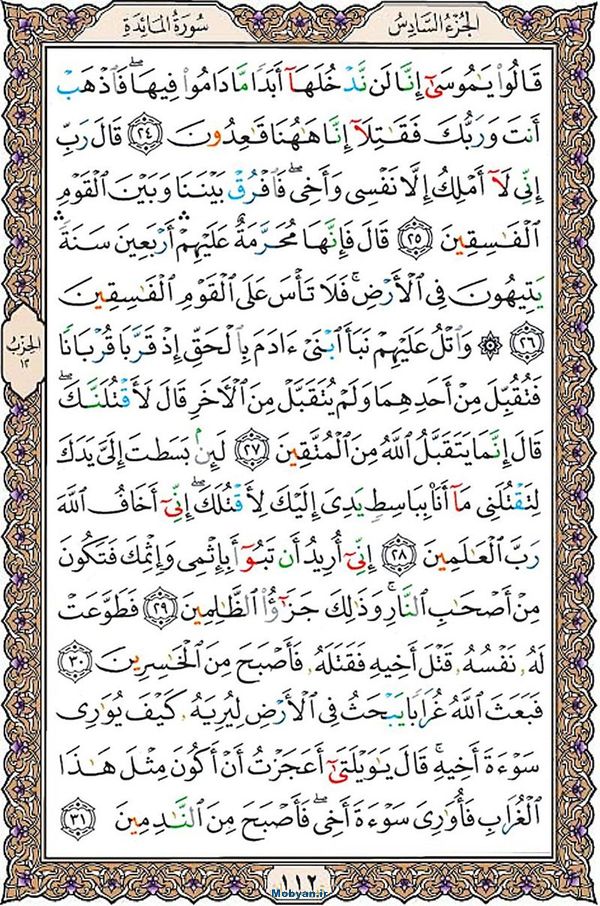 سُورَةُ المَائِدَةِ
الجُزءُ السَّادِسُ
قَالُوا۟ يَـٰمُوسَىٰٓ إِنَّا لَن نَّدْخُلَهَآ أَبَدًا مَّا دَامُوا۟ فِيهَا ۖ فَٱذْهَبْ
أَنتَ وَرَبُّكَ فَقَـٰتِلَآ إِنَّا هَـٰهُنَا قَـٰعِدُونَ ٢٤ قَالَ رَبِّ
إِنِّى لَآ أَمْلِكُ إِلَّا نَفْسِى وَأَخِى ۖ فَٱفْرُقْ بَيْنَنَا وَبَيْنَ ٱلْقَوْمِ
ٱلْفَـٰسِقِينَ ٢٥ قَالَ فَإِنَّهَا مُحَرَّمَةٌ عَلَيْهِمْ ۛ أَرْبَعِينَ سَنَةً ۛ
يَتِيهُونَ فِى ٱلْأَرْضِ ۚ فَلَا تَأْسَ عَلَى ٱلْقَوْمِ ٱلْفَـٰسِقِينَ
٢٦ ۞ وَٱتْلُ عَلَيْهِمْ نَبَأَ ٱبْنَىْ ءَادَمَ بِٱلْحَقِّ إِذْ قَرَّبَا قُرْبَانًا
فَتُقُبِّلَ مِنْ أَحَدِهِمَا وَلَمْ يُتَقَبَّلْ مِنَ ٱلْـَٔاخَرِ قَالَ لَأَقْتُلَنَّكَ ۖ
قَالَ إِنَّمَا يَتَقَبَّلُ ٱللَّهُ مِنَ ٱلْمُتَّقِينَ ٢٧ لَئِنۢ بَسَطتَ إِلَىَّ يَدَكَ
لِتَقْتُلَنِى مَآ أَنَا۠ بِبَاسِطٍ يَدِىَ إِلَيْكَ لِأَقْتُلَكَ ۖ إِنِّىٓ أَخَافُ ٱللَّهَ
رَبَّ ٱلْعَـٰلَمِينَ ٢٨ إِنِّىٓ أُرِيدُ أَن تَبُوٓأَ بِإِثْمِى وَإِثْمِكَ فَتَكُونَ
مِنْ أَصْحَـٰبِ ٱلنَّارِ ۚ وَذَٰلِكَ جَزَـٰٓؤُا۟ ٱلظَّـٰلِمِينَ ٢٩ فَطَوَّعَتْ
لَهُۥ نَفْسُهُۥ قَتْلَ أَخِيهِ فَقَتَلَهُۥ فَأَصْبَحَ مِنَ ٱلْخَـٰسِرِينَ ٣٠
فَبَعَثَ ٱللَّهُ غُرَابًا يَبْحَثُ فِى ٱلْأَرْضِ لِيُرِيَهُۥ كَيْفَ يُوَٰرِى
سَوْءَةَ أَخِيهِ ۚ قَالَ يَـٰوَيْلَتَىٰٓ أَعَجَزْتُ أَنْ أَكُونَ مِثْلَ هَـٰذَا
ٱلْغُرَابِ فَأُوَٰرِىَ سَوْءَةَ أَخِى ۖ فَأَصْبَحَ مِنَ ٱلنَّـٰدِمِينَ ٣١
الحِزبُ
١٢
١١٢
Mobyan.ir